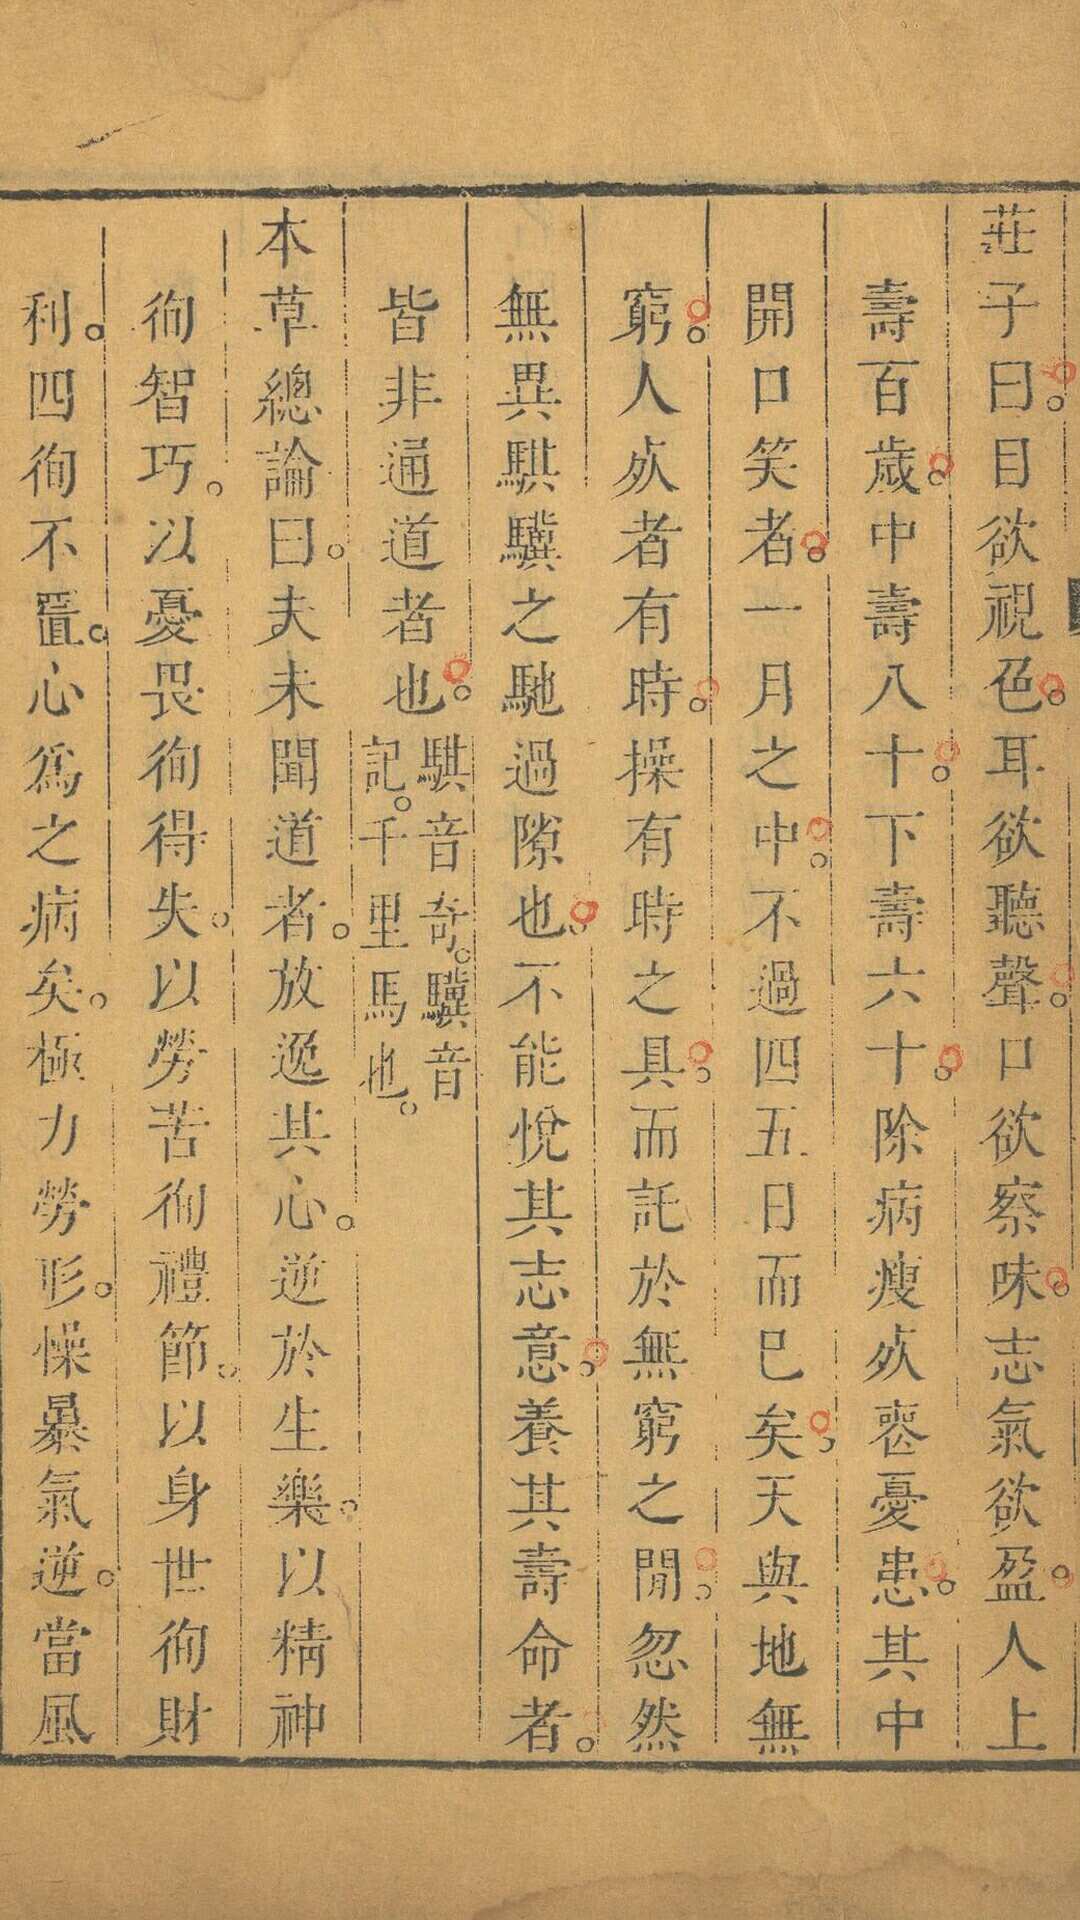 莊子曰。目欲視色。耳欲聽聲。口欲察味。志氣欲盈。人上
壽百歲。中壽八十。下壽六十。除病瘦死喪憂患。其中
開口笑者。一月之中。不過四五日而已矣。天與地無
窮。人死者有時。操有時之具。而託於無窮之閒。忽然
無異騏驥之馳過隙也。不能悅其志意。養其壽命者。
皆非通道者也。騏音奇。驥音
記。千里馬也。
本草總論曰。夫未聞道者。放逸其心。逆於生樂。以精神
徇智巧。以憂畏徇得失。以勞苦徇禮節。以身世徇財
利。四徇不置。心爲之病矣。極力勞形。懆暴氣逆。當風